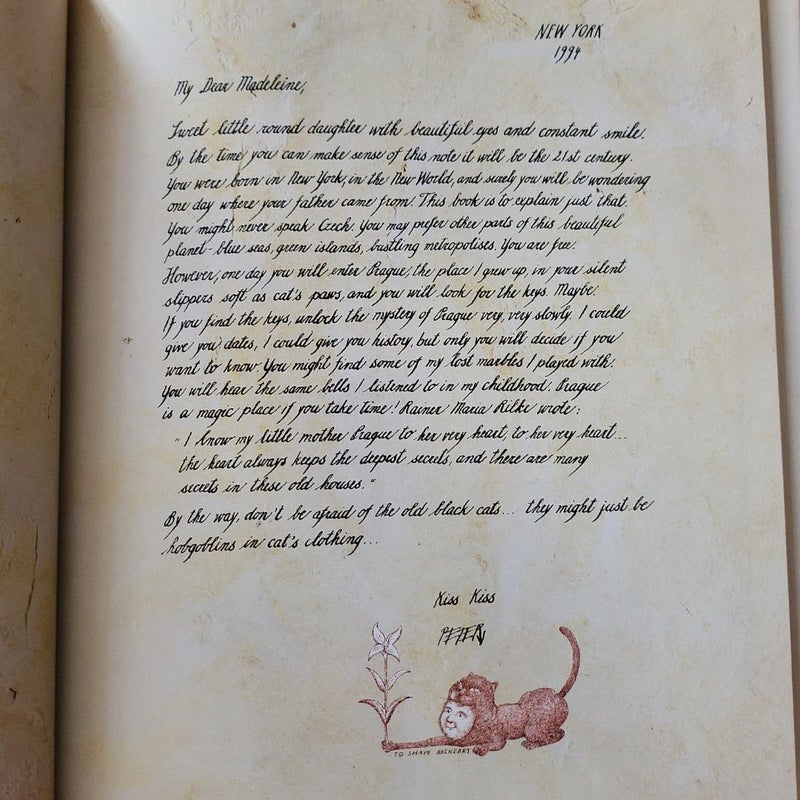 NEW YORK
1994
My Dear Madeleine,
Sweet little round daughter with beautiful eyes and constant smile.
By the time you can make sense of this note it will be the 21st century.
You were born in New York, in the New World, and surely you will be wondering
one day where your father came from. This book is to explain just that.
You might never speak Czech. You may prefer other parts of this beautiful
planet - blue seas, green islands, bustling metropolises. You are free.
However, one day you will enter Prague, the place I grew up, in your silent
slippers soft as cat's paws, and you will look for the keys. Maybe.
If you find the keys, unlock the mystery of Prague very, very slowly. I could
give you dates, I could give you history, but only you will decide if you
want to know. You might find some of my lost marbles I played with.
You will hear the same bells I listened to in my childhood. Prague
is a magic place if you take time! Rainer Maria Rilke wrote:
"I know my little mother Prague to her very heart, to her very heart...
the heart always keeps the deepest secrets, and there are many
secrets in these old houses."
By the way, don't be afraid of the old black cats... they might just be
hobgoblins in cat's clothing...
Kiss Kiss
PETER
TO SHAVE